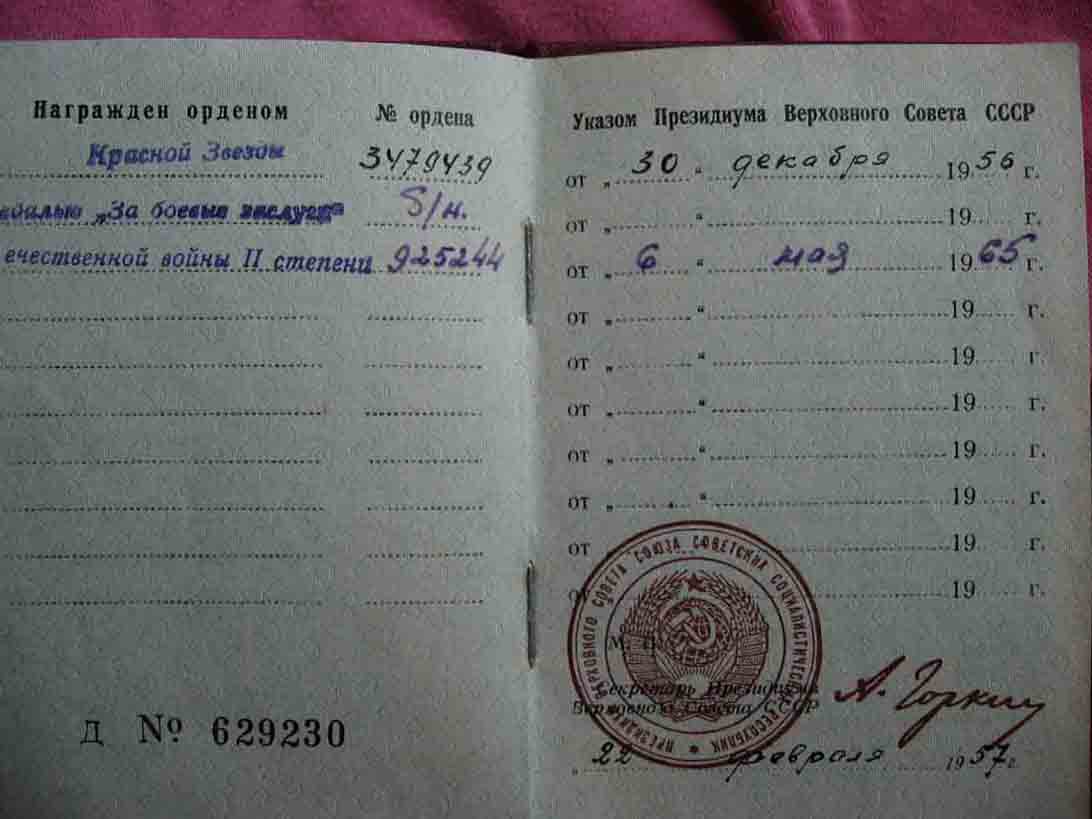 Награжден орденом № ордена
Красной Звезды 3479439
едалью „За боевые заслуги“ б/н.
ечественной войны II степени 925244
Д № 629230
Указом Президиума Верховного Совета СССР
от „ 30 “ декабря 1956 г.
от „ “ 19 г.
от „ 6 “ мая 1965 г.
от „ “ 19 г.
от „ “ 19 г.
от „ “ 19 г.
от „ “ 19 г.
от „ “ 19 г.
от 19 г.
от 19 г.
ПРЕЗИДИУМ ВЕРХОВНОГО СОВЕТА СОЮЗА СОВЕТСКИХ СОЦИАЛИСТИЧЕСКИХ РЕСПУБЛИК
М. П.
Секретарь Президиума
Верховного Совета СССР
А. Горкин
„ 22 февраля 1957 г.